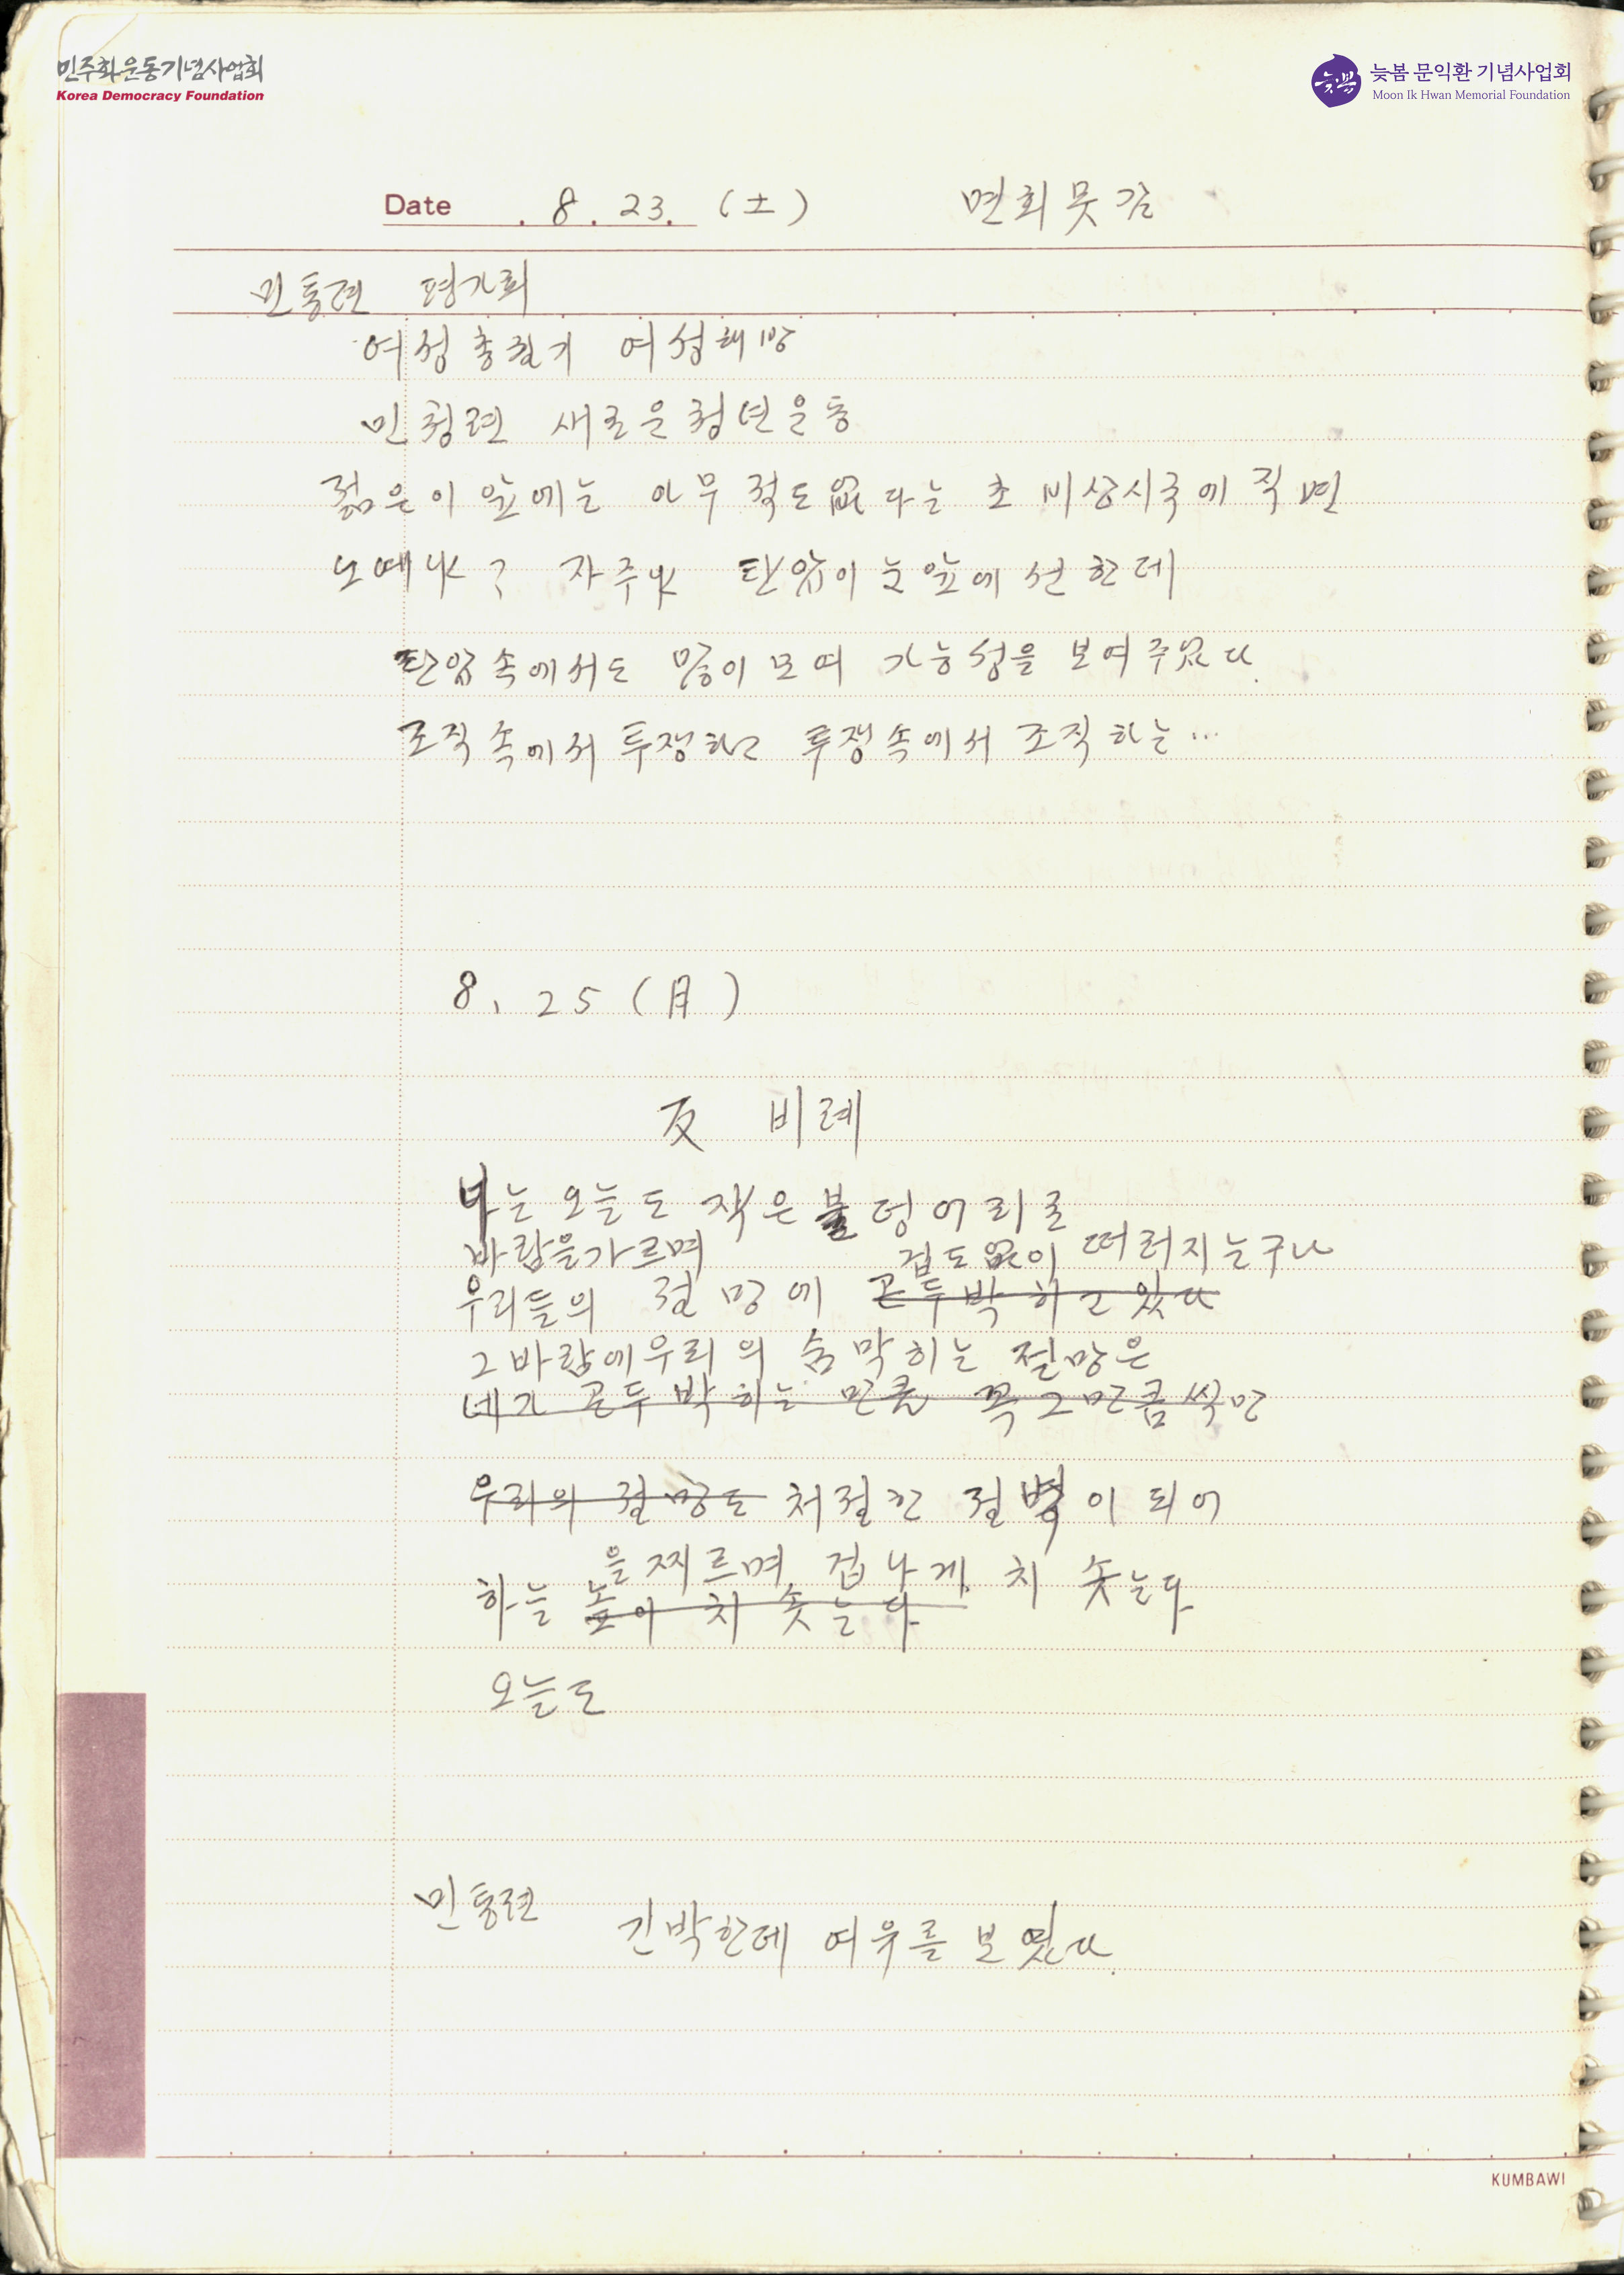 민주화운동기념사업회
Korea Democracy Foundation
늦봄
늦봄 문익환 기념사업회
Moon Ik Hwan Memorial Foundation
Date . 8 . 23. (土) 면회 못 감
민통련 평가회
여성총궐기 여성해방
민청련 새로운 청년운동
젊은이 앞에는 아무 적도 없다는 초 비상시국에 직면
노예냐? 자주냐 탄압이 눈앞에 선한데
탄압속에서도 많이 모여 가능성을 보여주었다.
조직속에서 투쟁하고 투쟁속에서 조직하는...
8. 25 (月)
反 비례
나는 오늘도 작은 불덩어리로
바람을 가르며 겁도 없이 떠러지는구나
우리들의 절망에 곤두박히고 있다
그바람에 우리의 숨막히는 절망은
네가 곤두박히는 만큼 꼭 그만큼씩만
우리의 절망도 처절한 절벽이 되어
을 찌르며 겁나게 치솟는다
하늘 높이 치솟는다
오늘도
민통련
긴박한데 여유를 보였다.
KUMBAWI